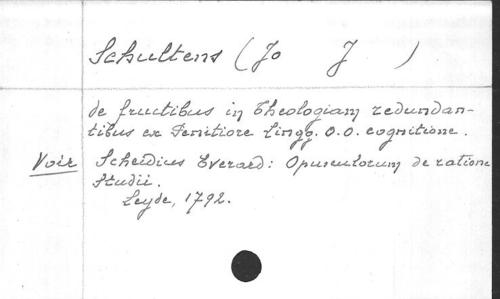 Schultens (Jo J )
de fructibus in Theologiam redundan-
tibus ex Penitiore Lingg. O.O. cognitione.
Voir Scheidius Everard: Opusculorum de ratione
Studii.
Leyde, 1792.